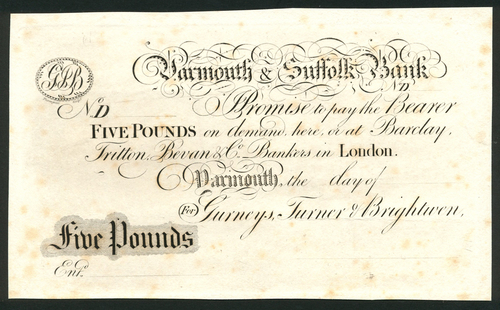 GTB
Yarmouth & Suffolk Bank
No D
No D
I Promise to pay the Bearer
FIVE POUNDS on demand, here, or at Barclay,
Tritton, Bevan & Co. Bankers in London.
Yarmouth, the day of
(For) Gurneys, Turner & Brightwen,
Five Pounds
Entd.